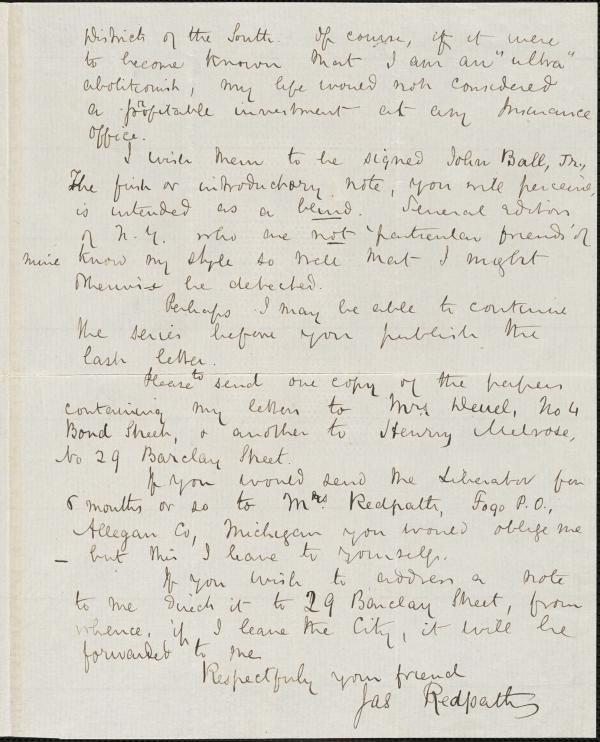 Districts of the South. Of course, if it were
to become known that I am an "ultra"
abolitionish, my life would not considered
a profitable investment at any Insurance
Office.
I wish them to be signed John Ball, Jr.,
The first or introductory note, you will perceive,
is intended as a blind. Several editors
of N. Y. who are not 'particular friends' of
mine know my style so well that I might
otherwise be detected.
Perhaps I may be able to continue
the series before you publish the
last letter.
Please to send one copy of the papers
containing my letters to Mrs , No 4
Bond Street, & another to Henry Melrose,
No 29 Barclay Street.
If you would send the Liberator for
6 months or so to Mrs. Redpath, Fogo P.O.,
Allegan Co, Michigan you would oblige me
– but this I leave to yourself.
If you wish to address a note
to me direct it to 29 Barclay Street, from
whence, if I leave the City, it will be
forwarded to me.
Respectfully your friend
Jas Redpath